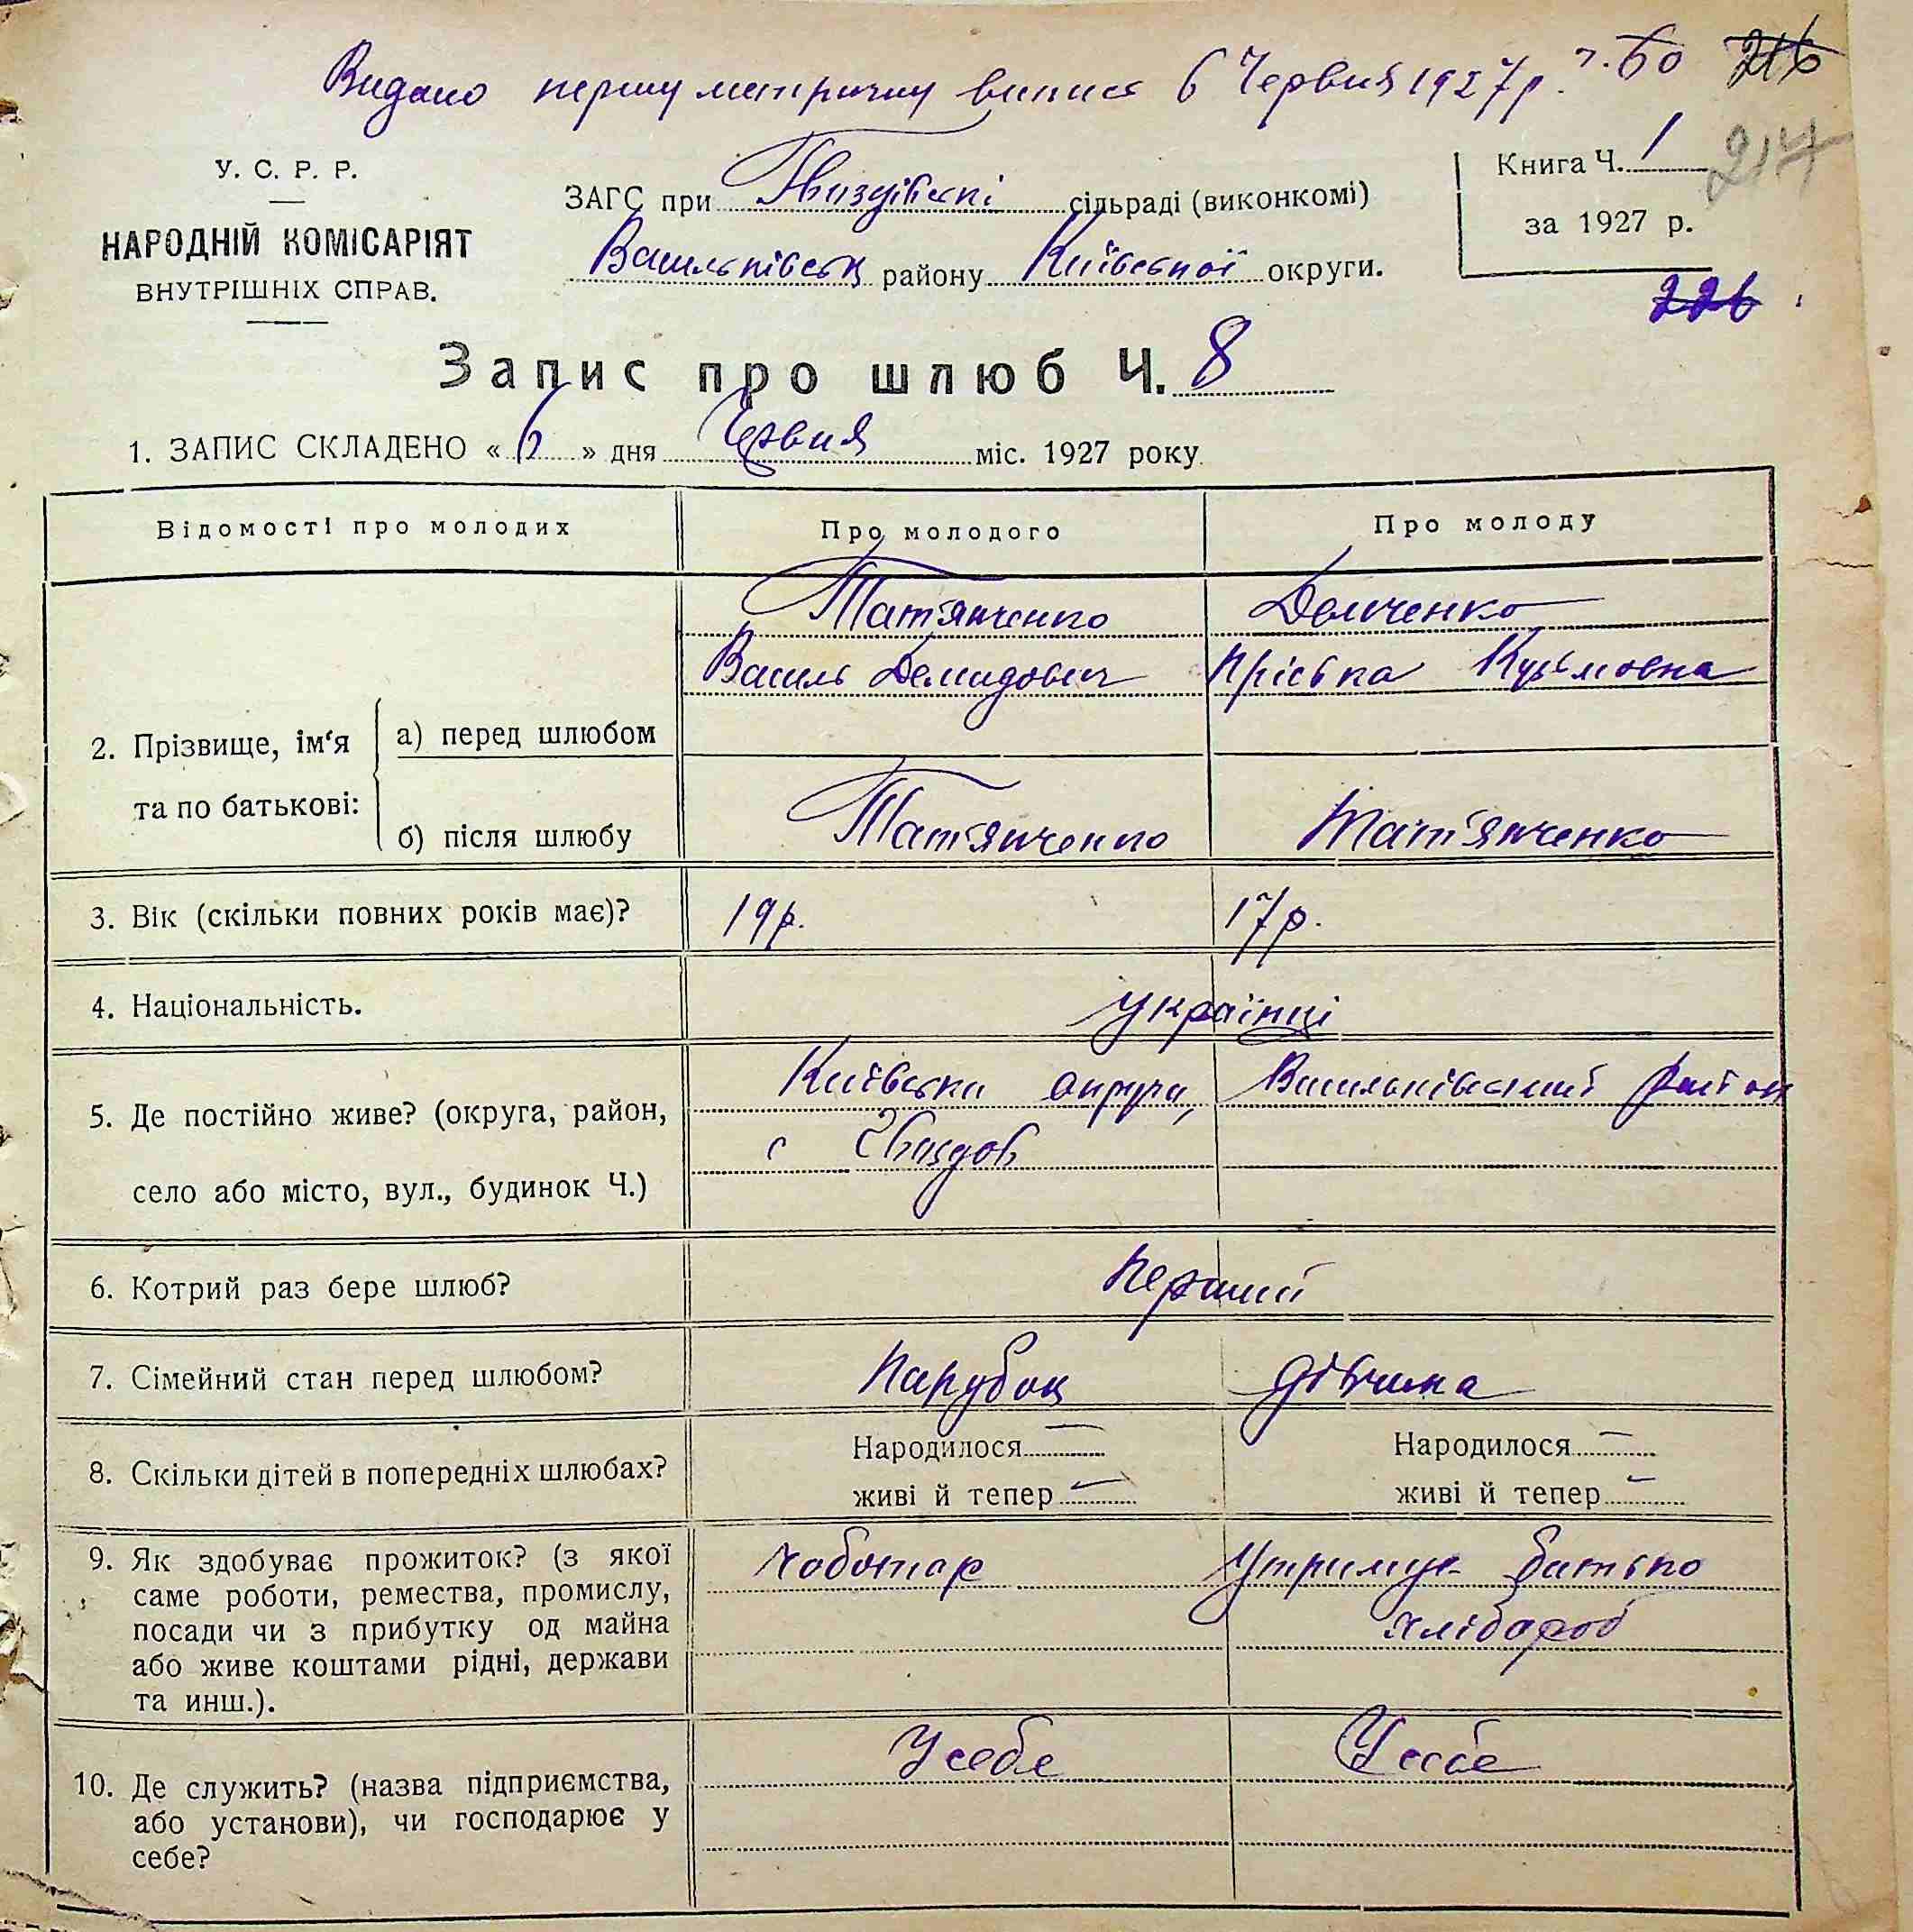 Видано першу метричну випись 6 Червня 1927 р. ч. 60 216
217
У. С. Р. Р.
НАРОДНІЙ КОМІСАРІЯТ
ВНУТРІШНІХ СПРАВ.
ЗАГС при Гвоздівські сільраді (виконкомі)
Васильківськ району Київської округи.
Книга Ч. 1
за 1927 р.
226
Запис про шлюб Ч. 8
1. ЗАПИС СКЛАДЕНО « 6 » дня Червня міс. 1927 року
Відомості про молодих Про молодого Про молоду
Татянченко Демченко
Василь Демидович Пріська Кузьмовна
2. Прізвище, ім'я та по батькові:
а) перед шлюбом
б) після шлюбу Тат'янченко Тат'янченко
3. Вік (скільки повних років має)? 19 р. 17 р.
4. Національність. українці
5. Де постійно живе? (округа, район, Київська округа, Васильківський район
с Гвоздов
село або місто, вул., будинок Ч.)
6. Котрий раз бере шлюб? Перший
7. Сімейний стан перед шлюбом? Парубок дівчина
8. Скільки дітей в попередніх шлюбах? Народилося — Народилося —
живі й тепер — живі й тепер —
9. Як здобуває прожиток? (з якої Чоботар Утримує батько
саме роботи, ремества, промислу, хлібороб
посади чи з прибутку од майна
або живе коштами рідні, держави
та инш.).
10. Де служить? (назва підприємства, У себе У себе
або установи), чи господарює у
себе?